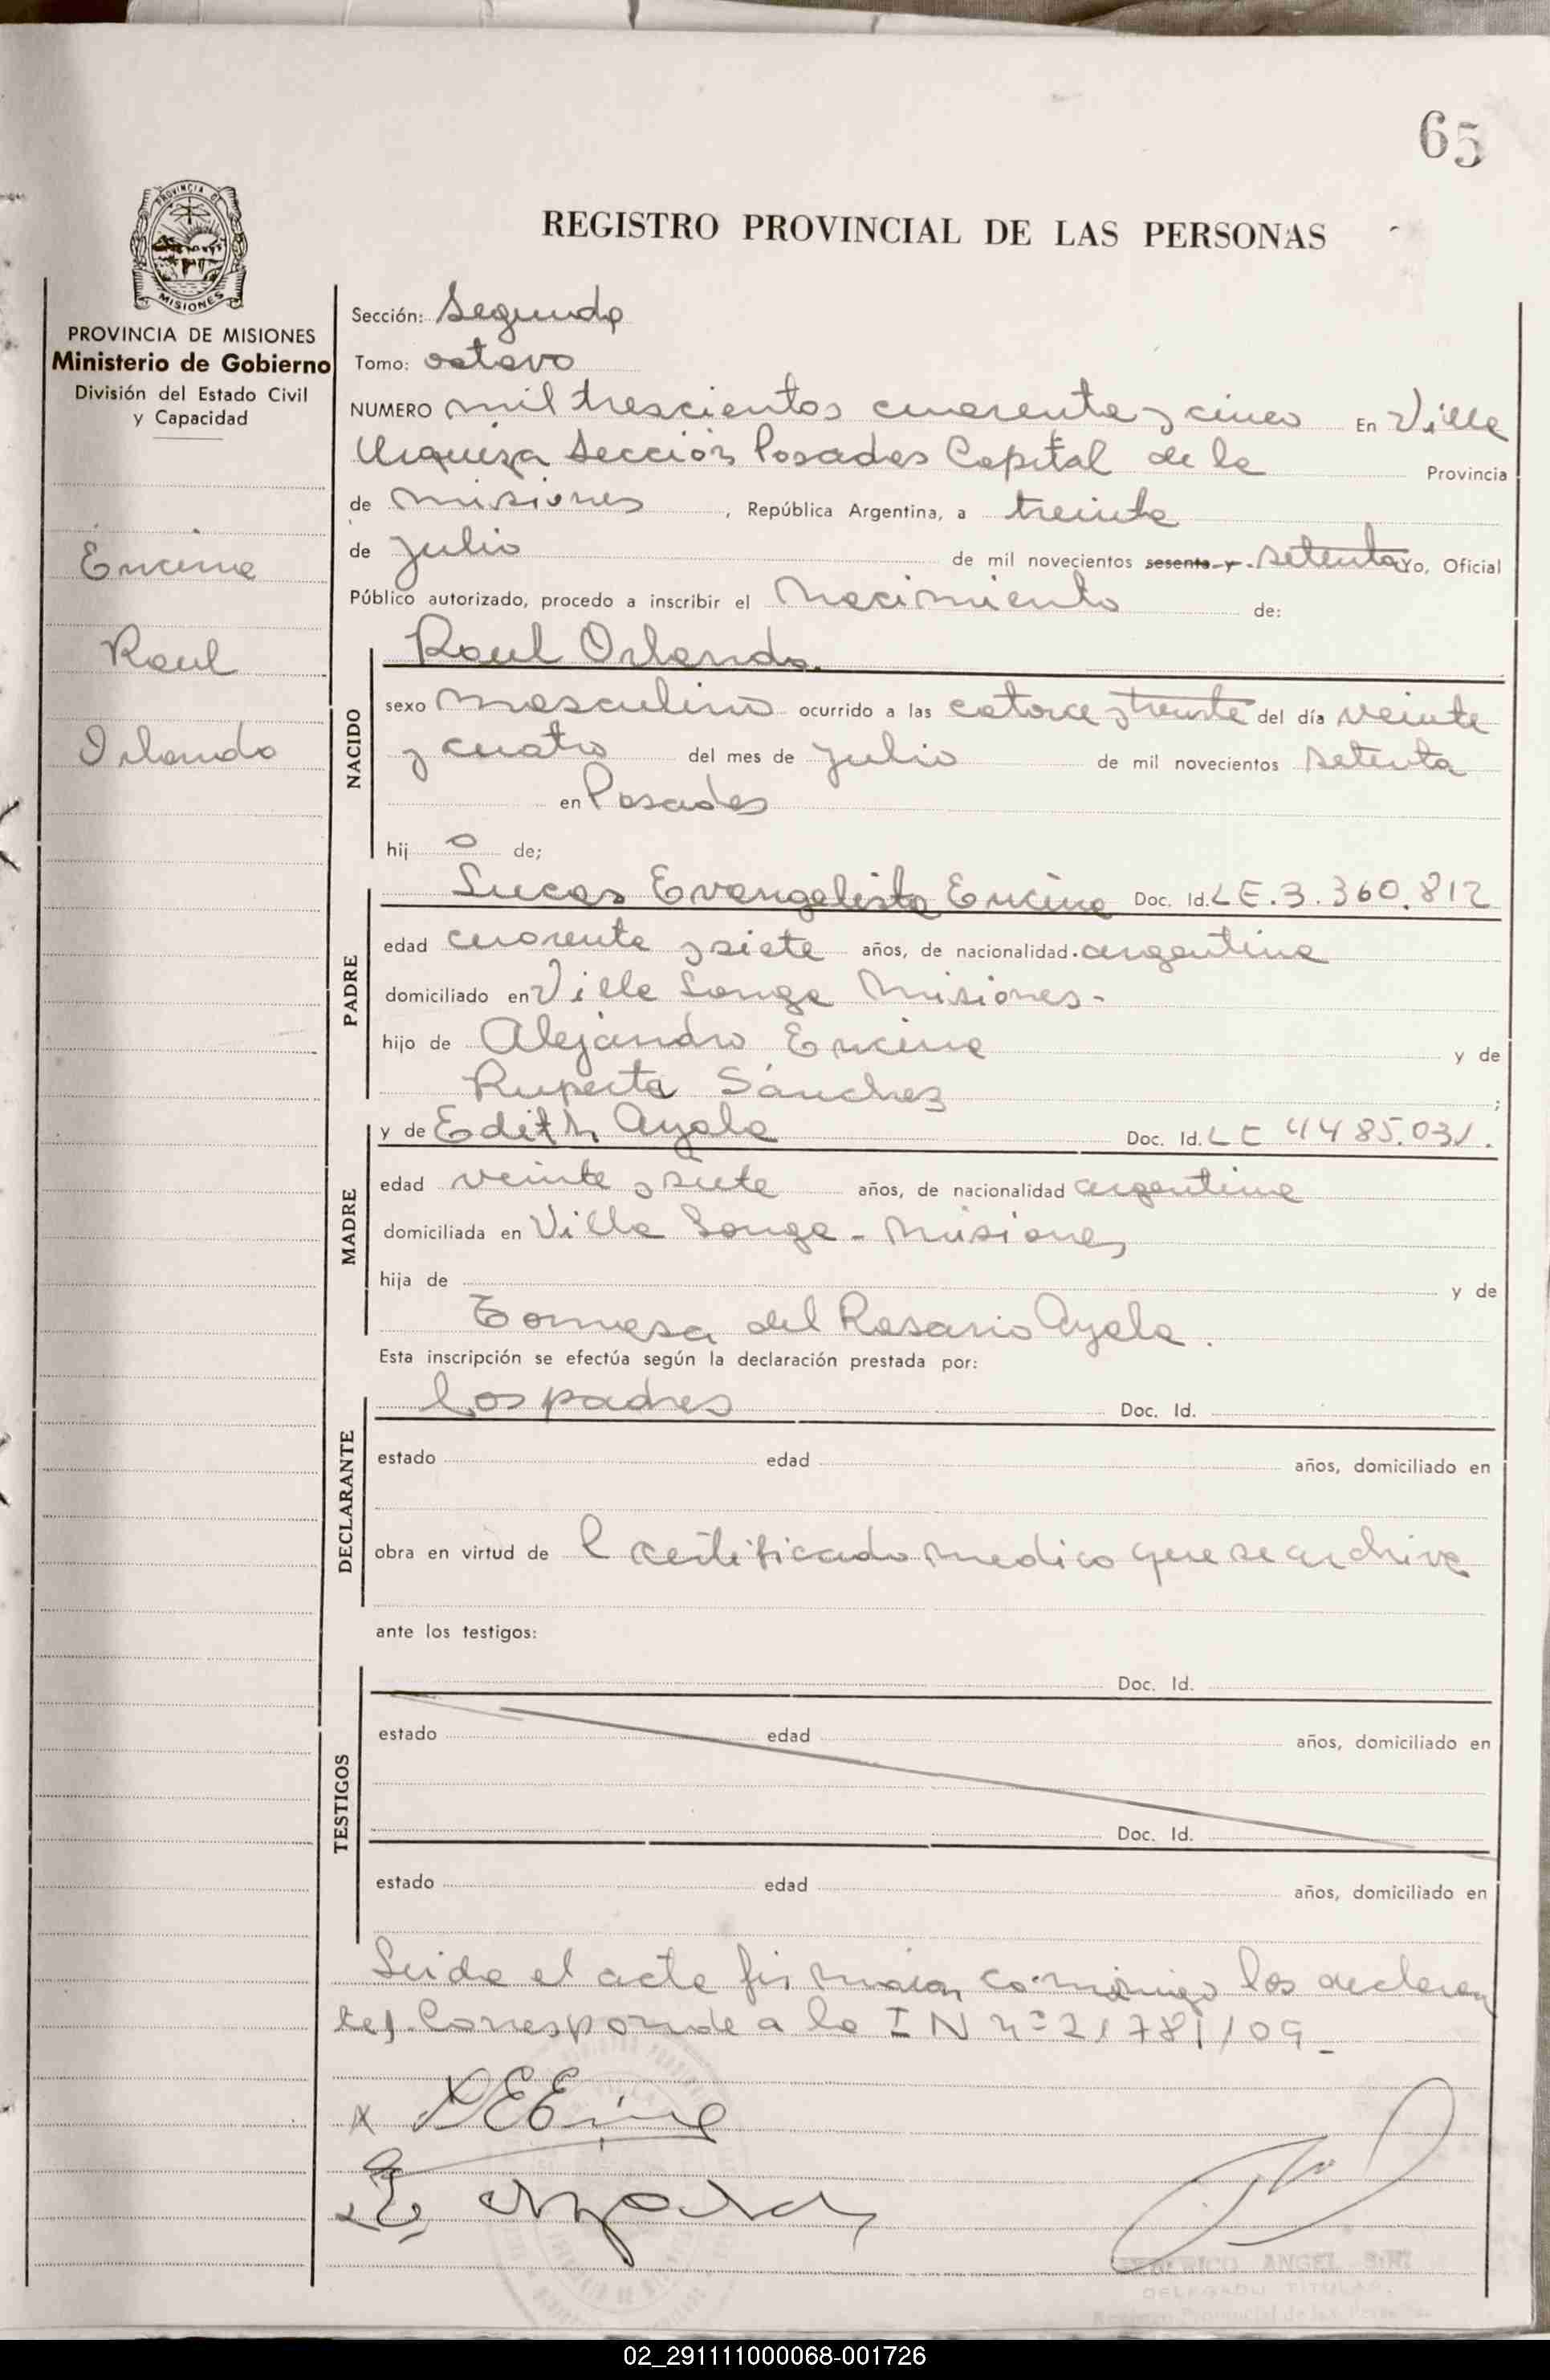 65
PROVINCIA DE
MISIONES
REGISTRO PROVINCIAL DE LAS PERSONAS
PROVINCIA DE MISIONES
Ministerio de Gobierno
División del Estado Civil
y Capacidad
Encina
Raul
Orlando
Sección: Segunda
Tomo: octavo
NUMERO mil trescientos cuarenta y cinco En Villa
Urquiza Sección Posadas Capital de la Provincia
de Misiones, República Argentina, a treinta
de Julio de mil novecientos sesenta y setenta Yo, Oficial
Público autorizado, procedo a inscribir el Nacimiento de:
NACIDO
Raul Orlando.
sexo masculino ocurrido a las catorce y treinta del día veinte
y cuatro del mes de Julio de mil novecientos setenta
en Posadas
hij o de;
PADRE
Lucas Evangelista Encina Doc. Id. LE.3.360.812
edad cuarenta y siete años, de nacionalidad argentina
domiciliado en Villa Longa Misiones-
hijo de Alejandro Encina y de
Ruperta Sánchez ;
MADRE
y de Edith Ayala Doc. Id. LC 4485.031.
edad veinte y siete años, de nacionalidad argentina
domiciliada en Villa Longa - Misiones
hija de y de
Tomasa del Rosario Ayala.
Esta inscripción se efectúa según la declaración prestada por:
DECLARANTE
los padres Doc. Id.
estado edad años, domiciliado en
obra en virtud de l certificado medico que se archiva
ante los testigos:
TESTIGOS
Doc. Id.
estado edad años, domiciliado en
Doc. Id.
estado edad años, domiciliado en
Leida el acta firman conmigo los declaran
tes. Corresponde a la I N nº 21781/09_
ANGEL
DELEGADO TITULAR
Registro Provincial de las Personas
02_291111000068-001726